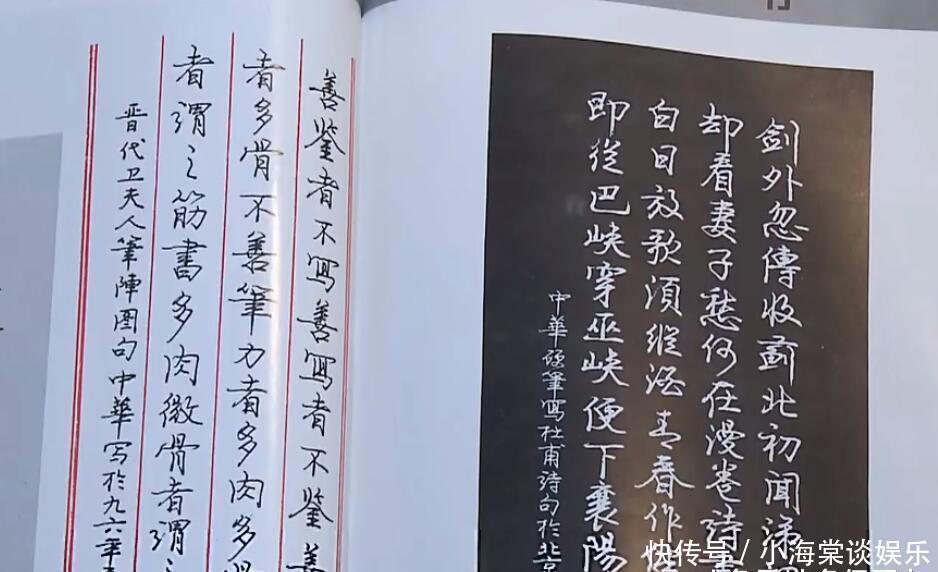 善鉴者不寫善寫者不鉴善
者多骨不善筆力者多肉多
者謂之筋書多肉微骨者謂
晋代卫夫人筆陣图句中華写於九六年
剑外忽傳收薊北初闻涕
却看妻子愁何在漫卷诗
白日放歌須縱酒青春作
即從巴峡穿巫峡便下襄陽
中華硬筆寫杜甫诗句於北京
快传号 / 小海棠谈娱乐